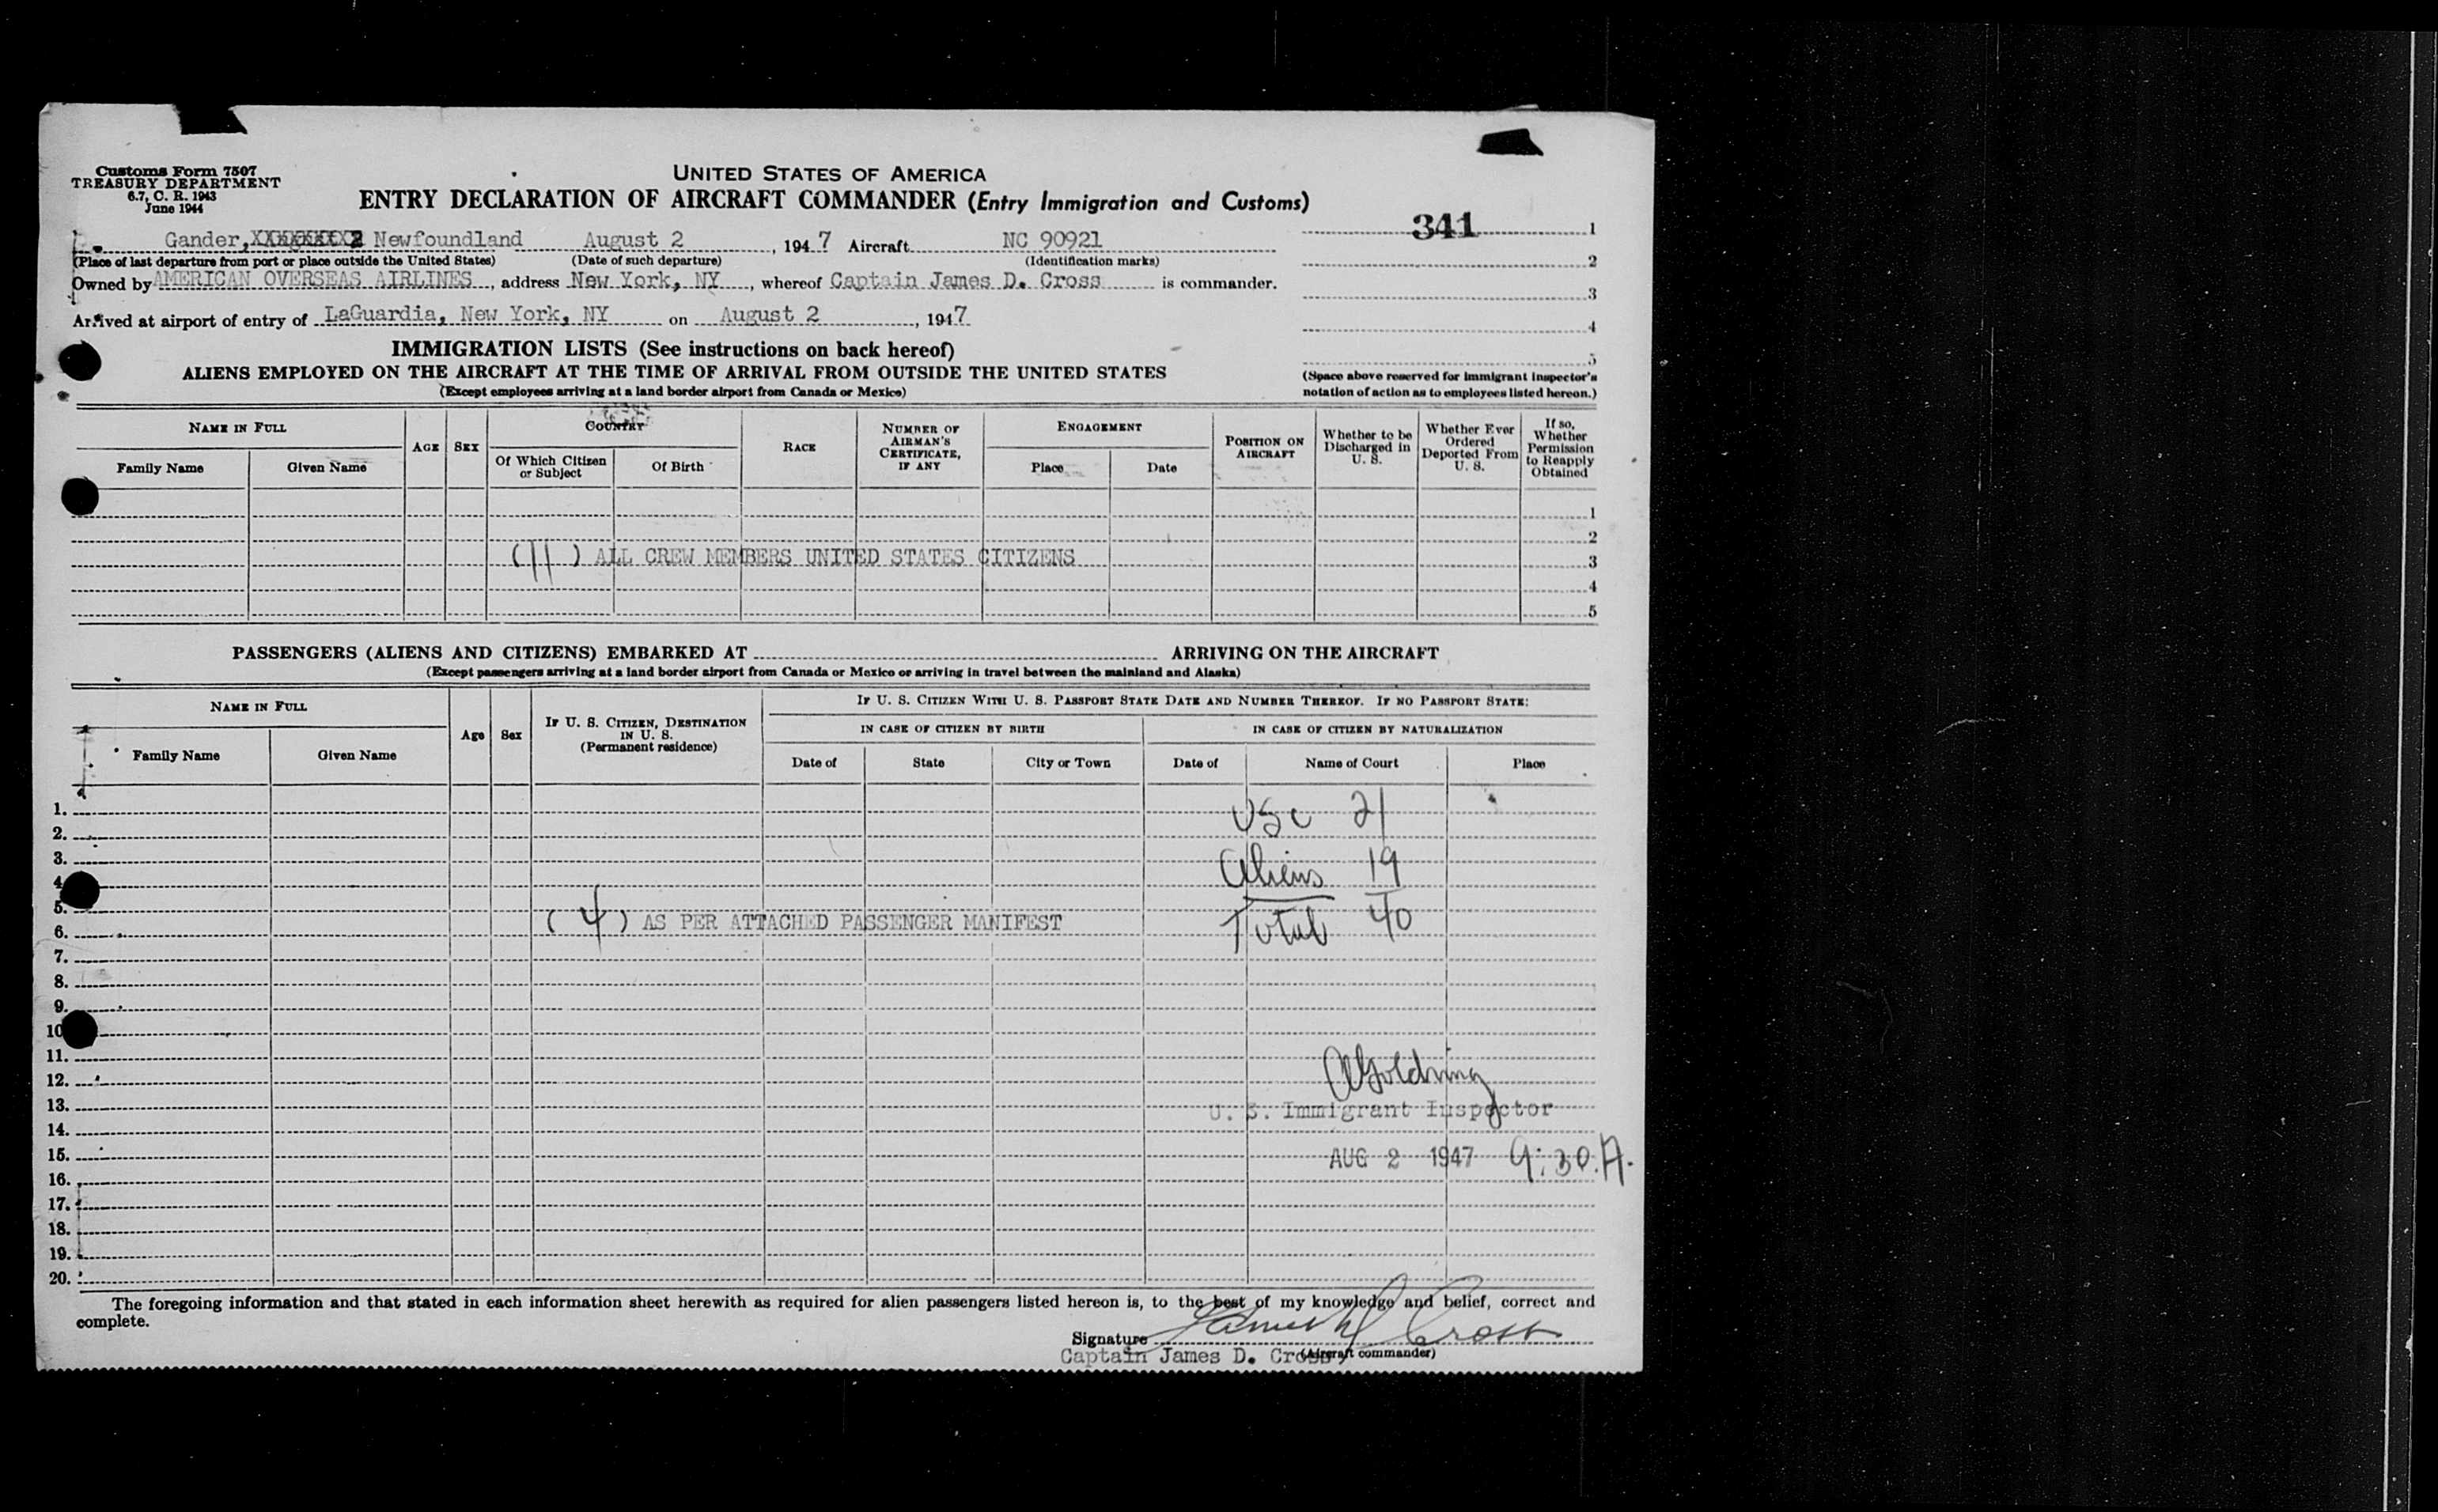 Customs Form 7507
TREASURY DEPARTMENT
6.7, C. R. 1943
June 1944
UNITED STATES OF AMERICA
ENTRY DECLARATION OF AIRCRAFT COMMANDER (Entry Immigration and Customs)
341 1
Gander, Newfoundland August 2, 1947 Aircraft NC 90921
(Place of last departure from port or place outside the United States) (Date of such departure) (Identification marks)
2
Owned by AMERICAN OVERSEAS AIRLINES, address New York, NY, whereof Captain James D. Cross is commander.
3
Arrived at airport of entry of LaGuardia, New York, NY on August 2, 1947
4
IMMIGRATION LISTS (See instructions on back hereof)
5
ALIENS EMPLOYED ON THE AIRCRAFT AT THE TIME OF ARRIVAL FROM OUTSIDE THE UNITED STATES
(Except employees arriving at a land border airport from Canada or Mexico)
(Space above reserved for immigrant inspector's
notation of action as to employees listed hereon.)
NAME IN FULL
Family Name
Given Name
AGE
SEX
COUNTRY
Of Which Citizen
or Subject
Of Birth
RACE
NUMBER OF
AIRMAN'S
CERTIFICATE,
IF ANY
ENGAGEMENT
Place
Date
POSITION ON
AIRCRAFT
Whether to be
Discharged in
U. S.
Whether Ever
Ordered
Deported From
U. S.
If so,
Whether
Permission
to Reapply
Obtained
1
2
(11) ALL CREW MEMBERS UNITED STATES CITIZENS 3
4
5
PASSENGERS (ALIENS AND CITIZENS) EMBARKED AT ARRIVING ON THE AIRCRAFT
(Except passengers arriving at a land border airport from Canada or Mexico or arriving in travel between the mainland and Alaska)
NAME IN FULL
Family Name
Given Name
Age
Sex
IF U. S. CITIZEN, DESTINATION
IN U. S.
(Permanent residence)
IF U. S. CITIZEN WITH U. S. PASSPORT STATE DATE AND NUMBER THEREOF. IF NO PASSPORT STATE:
IN CASE OF CITIZEN BY BIRTH
IN CASE OF CITIZEN BY NATURALIZATION
Date of
State
City or Town
Date of
Name of Court
Place
1. USC 21
2.
3. Aliens 19
4.
5.
6. (4) AS PER ATTACHED PASSENGER MANIFEST Total 40
7.
8.
9.
10
11.
12. AGoldring
13. U. S. Immigrant Inspector
14.
15. AUG 2 1947 9:30.A.
16.
17.
18.
19.
20.
The foregoing information and that stated in each information sheet herewith as required for alien passengers listed hereon is, to the best of my knowledge and belief, correct and
complete.
Signature James D Cross
Captain James D. Cross (Aircraft commander)